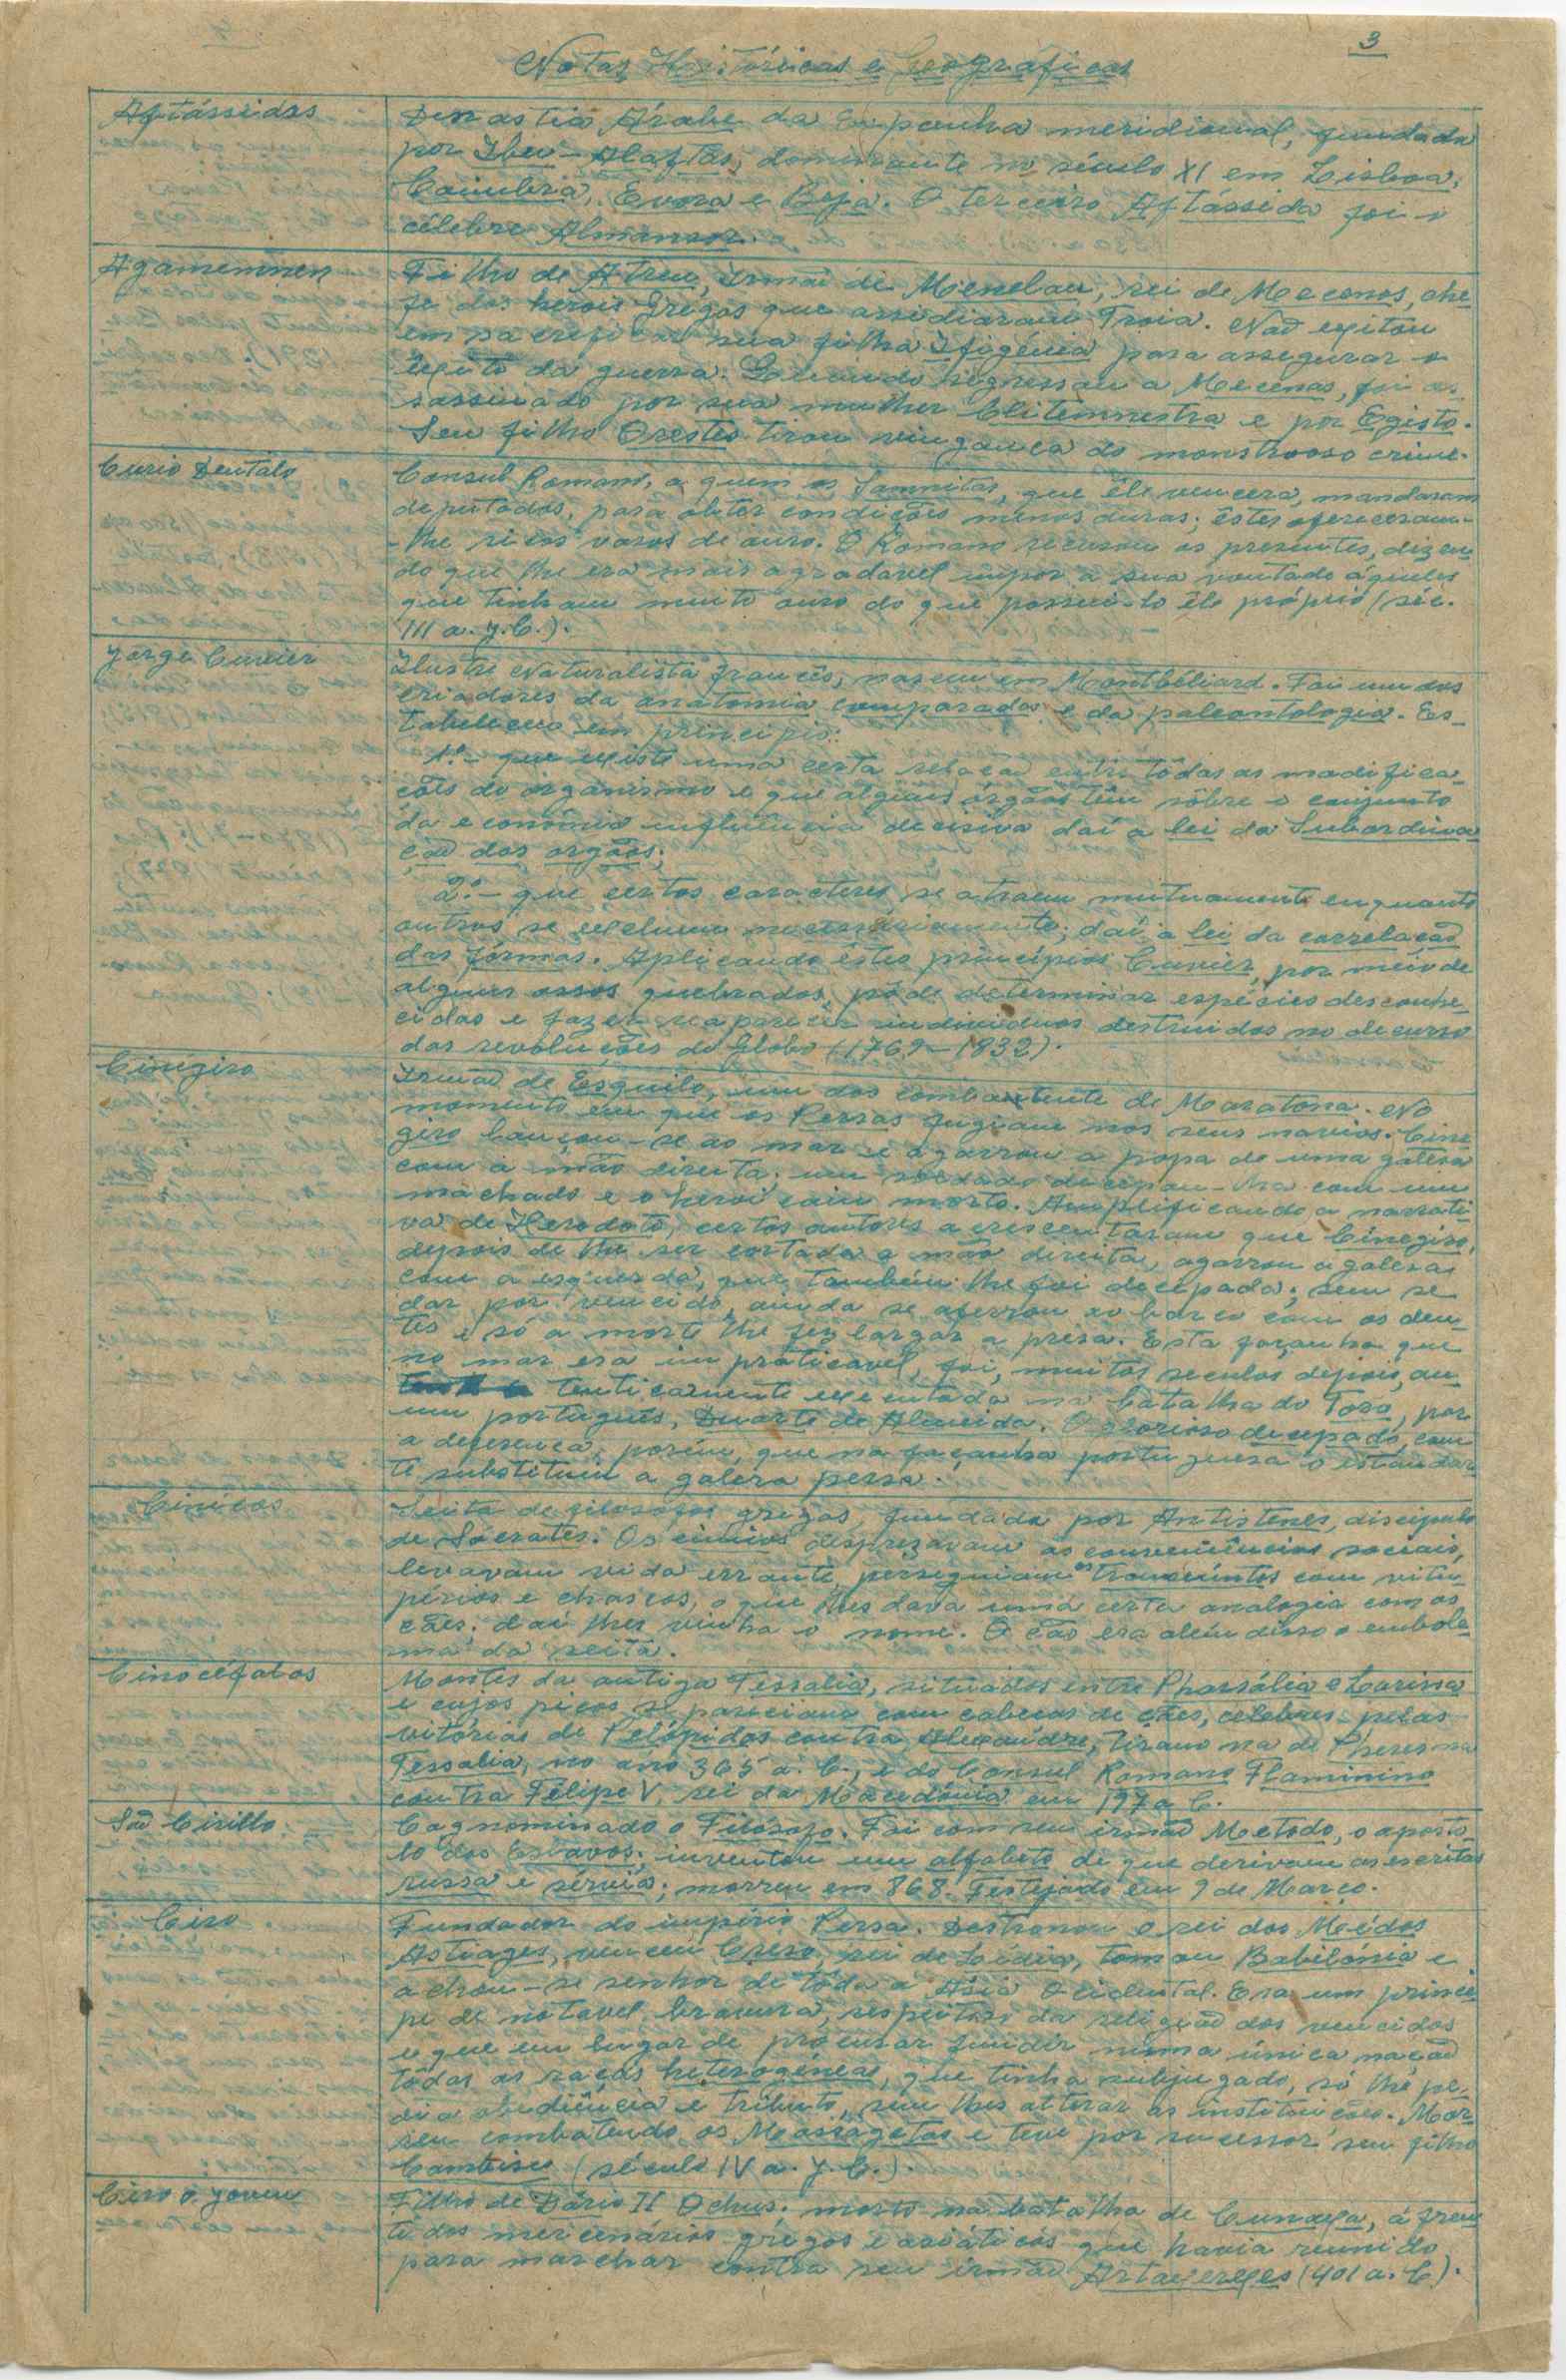 3
Notas Históricas e Geográficas
Aftássidas
Dinastia Árabe da Espanha meridional, fundada
por Iben-Alaftas, dominante no século XI em Lisboa,
Coimbra, Evora e Beja. O terceiro Aftássida foi o
célebre Almansor.
Agamemnon
Filho de Atreu, irmão de Menelau, rei de Mecenas, che
fe dos herois Gregos que assediaram Troia. Não exitou
em sacrificar sua filha Ifigénia para assegurar o
exito da guerra. Quando regressou a Mecenas, foi as
sassinado por sua mulher Clitemnestra e por Egisto.
Seu filho Orestes tirou vingança do monstruoso crime.
Curio Dentato
Consul Romano, a quem os Samnitas, que êle vencera, mandaram
deputados, para obter condições menos duras; êstes ofereceram-
-lhe ricos vasos de ouro. O Romano recusou os presentes, dizen
do que lhe era mais agradavel impor a sua vontade áqueles
que tinham muito ouro do que possui-lo êle próprio (séc.
III a. J. C.).
Jorge Cuvier
Ilustre Naturalista francês, nasceu em Montbéliard. Foi um dos
criadores da anatomia comparada e da paleontologia. Es-
tabeleceu em principio:
1.º - que existe uma certa relação entre tôdas as modifica-
ções do organismo e que alguns órgãos têm sôbre o conjunto
da economia influência decisiva daí a lei da Subordina
ção dos orgãos;
2.º - que certos caracteres se atraem mutuamente enquanto
outros se excluem necessáriamente; daí a lei da correlação
das fórmas. Aplicando êstes princípios Cuvier, por meio de
alguns ossos quebrados, pôde determinar espécies desconhe
cidas e fazer reaparecer individuos destruidos no decurso
das revoluções do globo (1769-1832).
Cinegiro
Irmão de Esquilo, um dos combatente de Maratona. No
momento em que os Persas fugiam nos seus navios. Cine
giro lançou-se ao mar e agarrou a popa de uma galera
com a mão direita; um soldado decepou-lha com um
machado e o heroi caiu morto. Amplificando a narrati
va de Herodoto, certos autores acrescentaram que Cinegiro,
depois de lhe ser cortada a mão direita, agarrou a galera
com a esquerda, que tambêm lhe foi decepada; sem se
dar por vencido, ainda se aferrou ao barco com os den-
tes e só a morte lhe fez largar a presa. Esta façanha que
no mar era impraticavel, foi, muitos seculos depois, au
tenticamente executada na batalha do Toro, por
um português, Duarte de Almeida. O glorioso decepado, com
a deferença, porém, que na façanha portuguesa o estandar
te substituiu a galera persa.
Cinicos
Seita de filosofos gregos, fundada por Antistenes, discipulo
de Sócrates. Os cinicos desprezavam as conveniências sociais,
levavam vida errante, perseguiam os transeúntes com vitu-
périos e chascos, o que lhes dava uma certa analogia com os
cães; dai lhes vinha o nome. O cão era além disso o embole
ma da seita.
Cinocéfalos
Montes da antiga Tessalia, situados entre Pharsália e Larissa
e cujos picos se pareciam com cabeças de cães, celebres pelas
vitórias de Pelópidas contra Alexandre, tirano na de Pheres na
Tessalia, no ano 365 a. C., e do Consul Romano Flaminino
contra Felipe V, rei da Macedónia em 197 a C.
São Cirillo
Cognominado o Filósofo. Foi com seu irmão Metodo, o aposto-
lo dos Eslavos; inventou um alfabeto de que derivam as escritas
russa e sérvia; morreu em 868. Festejado em 9 de Março.
Ciro
Fundador do império Persa. Destronou o rei dos Médos
Astiages, venceu Creso, rei de Lídia, tomou Babilónia e
achou-se senhor de tôda a Ásia Ocidental. Era um princi
pe de notavel bravura, respeitoso da religião dos vencidos
e que em lugar de procurar fundir numa única nação
tôdas as raças heterogéneas, que tinha subjugado, só lhe pe-
dia obediência e tributo, sem lhes alterar as instituições. Mor
reu combatendo os Massagetas e teve por sucessor seu filho
Cambises (século IV a. J. C.).
Ciro o Jovem
Filho de Dário II Ochus; morto na batalha de Cunaxa, á fren
te dos mercenários gregos e asiáticos que havia reunido
para marchar contra seu irmão Artaxerxes (401 a. C).